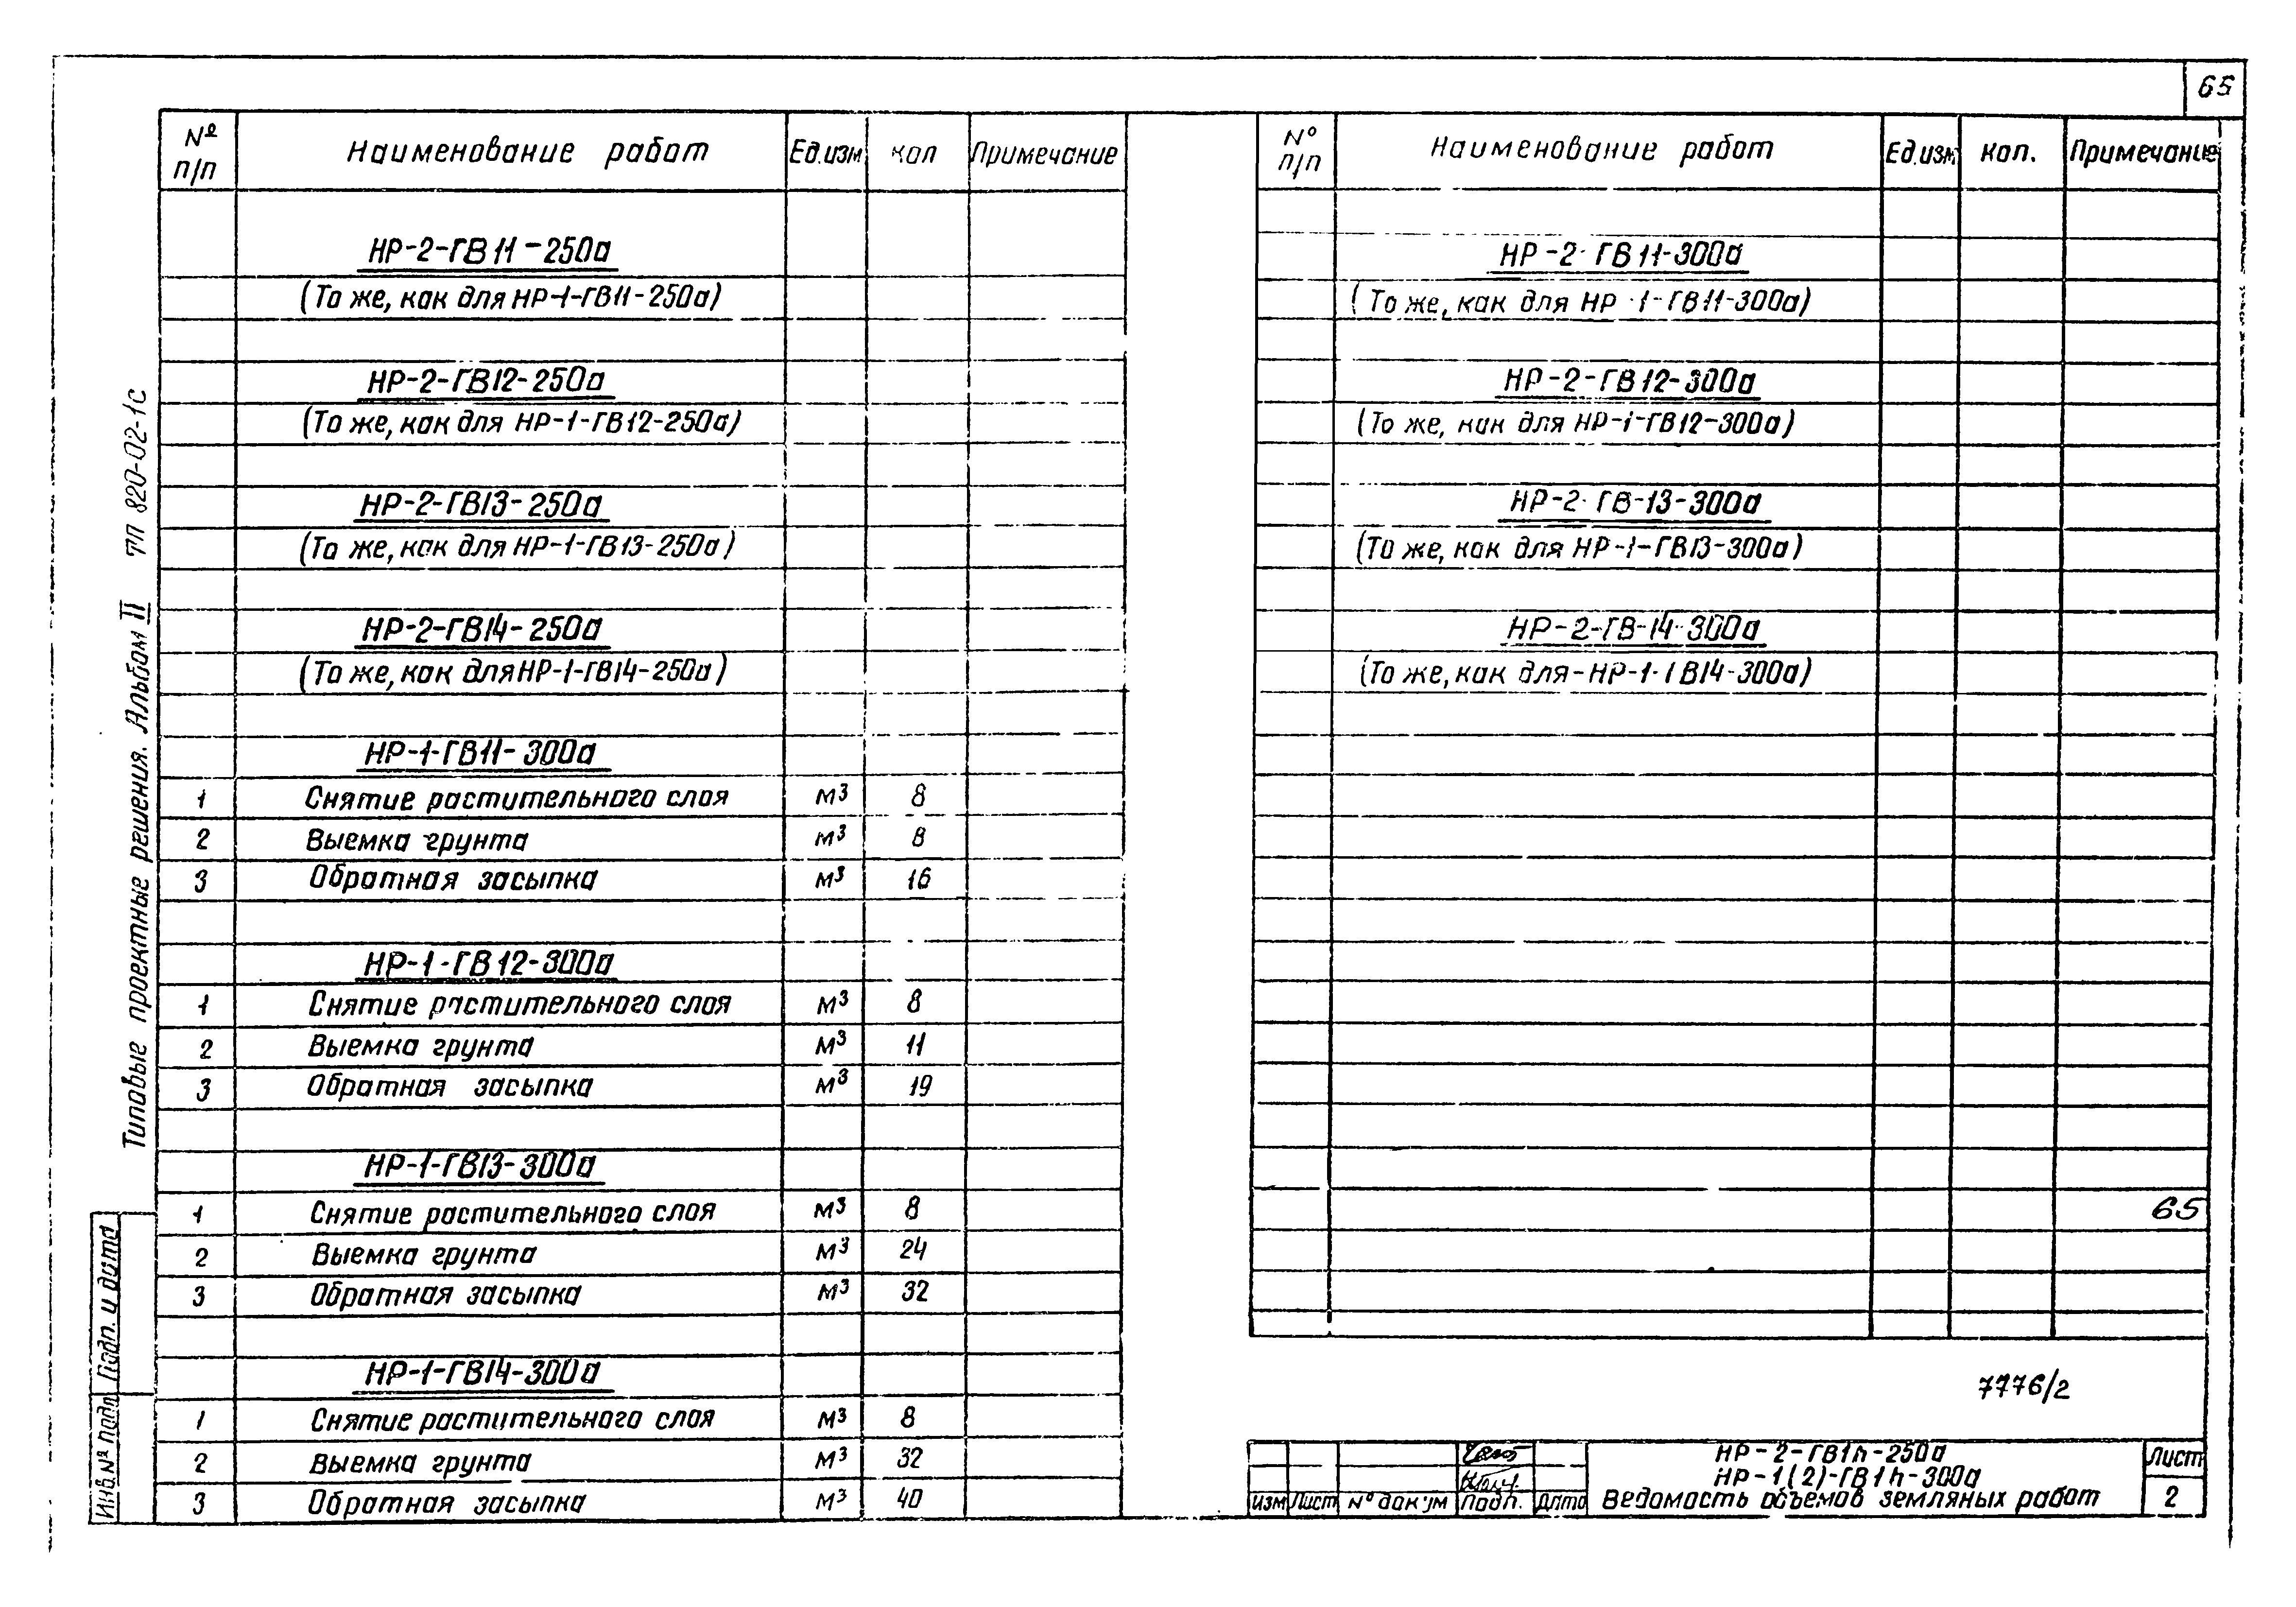 65
№ п/п Наименование работ Ед.изм кол Примечание
НР-2-ГВ11-250а
(То же, как для НР-1-ГВ11-250а)
НР-2-ГВ12-250а
(То же, как для НР-1-ГВ12-250а)
НР-2-ГВ13-250а
(То же, как для НР-1-ГВ13-250а)
НР-2-ГВ14-250а
(То же, как для НР-1-ГВ14-250а)
НР-1-ГВ11-300а
1 Снятие растительного слоя м³ 8
2 Выемка грунта м³ 8
3 Обратная засыпка м³ 16
НР-1-ГВ12-300а
1 Снятие растительного слоя м³ 8
2 Выемка грунта м³ 11
3 Обратная засыпка м³ 19
НР-1-ГВ13-300а
1 Снятие растительного слоя м³ 8
2 Выемка грунта м³ 24
3 Обратная засыпка м³ 32
НР-1-ГВ14-300а
1 Снятие растительного слоя м³ 8
2 Выемка грунта м³ 32
3 Обратная засыпка м³ 40
№ п/п Наименование работ Ед.изм кол. Примечание
НР-2-ГВ11-300а
(То же, как для НР-1-ГВ11-300а)
НР-2-ГВ12-300а
(То же, как для НР-1-ГВ12-300а)
НР-2-ГВ-13-300а
(То же, как для НР-1-ГВ13-300а)
НР-2-ГВ-14-300а
(То же, как для-НР-1-ГВ14-300а)
65
7776/2
НР-2-ГВ1h-250а
НР-1(2)-ГВ1h-300а
Ведомость объемов земляных работ
Лист
2
Изм Лист № докум Подп. Дата
Типовые проектные решения. Альбом II ТП 820-02-1с
Подп. и дата
Инв.№ подл